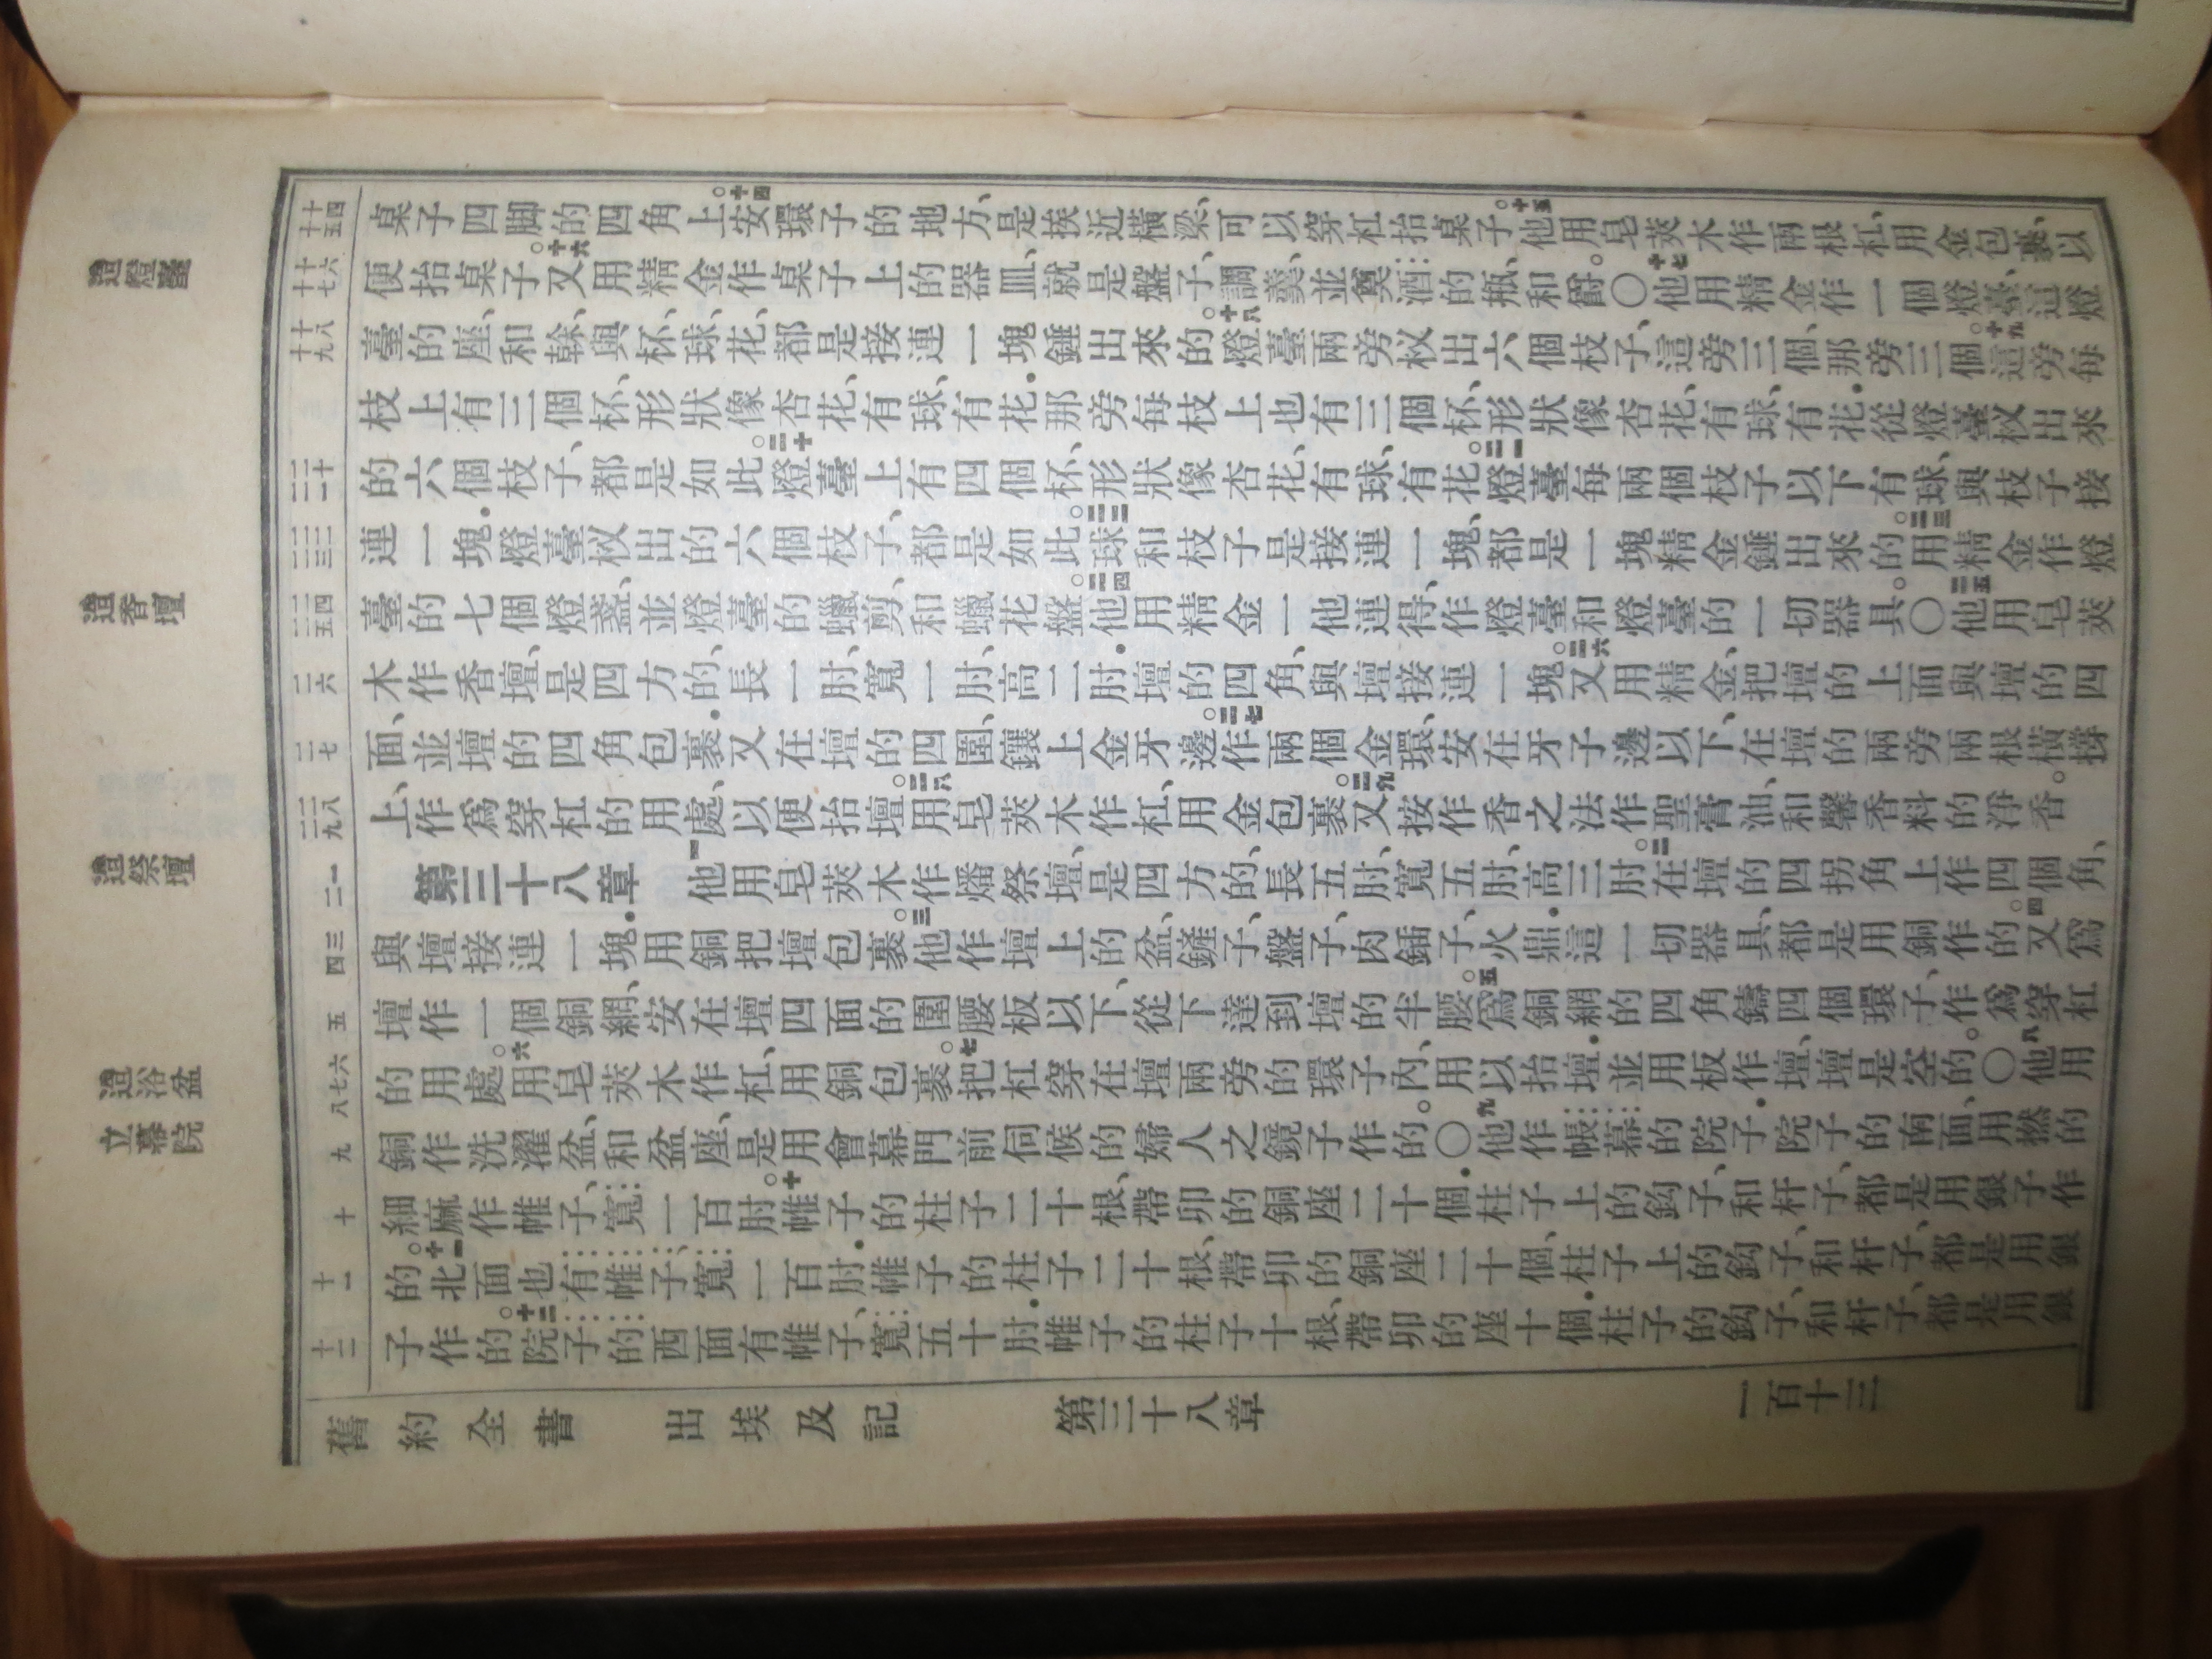 造燈臺
造香壇
造祭壇
造浴盆
立幕院
十四
十五
十六
十七
十八
十九
二十
二一
二二
二三
二四
二五
二六
二七
二八
二九
一
二
三
四
五
六
七
八
九
十
十一
十二
桌子四脚的四角上。十四安環子的地方、是挨近橫梁、可以穿杠抬桌子。十五他用皂莢木作兩根杠、用金包裹、以
便抬桌子。十六又用精金作桌子上的器皿、就是盤子、調羹、並奠酒的瓶、和爵。〇十七他用精金作一個燈臺、這燈
臺的座、和榦、與杯、球、花、都是接連一塊錘出來的。十八燈臺兩旁杈出六個枝子、這旁三個、那旁三個。十九這旁每
枝上有三個杯、形狀像杏花、有球、有花.那旁每枝上也有三個杯、形狀像杏花、有球、有花.從燈臺杈出來
的六個枝子、都是如此。二十燈臺上有四個杯、形狀像杏花、有球、有花。二一燈臺每兩個枝子以下有球、與枝子接
連一塊.燈臺杈出的六個枝子、都是如此。二二球和枝子是接連一塊、都是一塊精金錘出來的。二三用精金作燈
臺的七個燈盞、並燈臺的蠟剪、和蠟花盤。二四他用精金一他連得、作燈臺和燈臺的一切器具。〇二五他用皂莢
木作香壇、是四方的、長一肘、寬一肘、高二肘.壇的四角、與壇接連一塊。二六又用精金、把壇的上面與壇的四
面、並壇的四角包裹.又在壇的四圍、鑲上金牙邊。二七作兩個金環、安在牙子邊以下、在壇的兩旁兩根橫撐
上、作爲穿杠的用處、以便抬壇。二八用皂莢木作杠、用金包裹。二九又按作香之法作聖膏油、和馨香料的淨香。
第三十八章　一他用皂莢木作燔祭壇、是四方的、長五肘、寬五肘、高三肘。二在壇的四拐角上作四個角、
與壇接連一塊.用銅把壇包裹。三他作壇上的盆、鏟子、盤子、肉鍤子、火鼎.這一切器具、都是用銅作的。四又爲
壇作一個銅網、安在壇四面的圍腰板以下、從下達到壇的半腰。五爲銅網的四角鑄四個環子、作爲穿杠
的用處。六用皂莢木作杠、用銅包裹。七把杠穿在壇兩旁的環子內、用以抬壇.並用板作壇、壇是空的。〇八他用
銅作洗濯盆、和盆座、是用會幕門前伺候的婦人之鏡子作的。〇九他作帳幕的院子.院子的南面、用撚的
細麻作帷子、寬一百肘。十帷子的柱子二十根、帶卯的銅座二十個.柱子上的鈎子、和杆子、都是用銀子作
的。十一北面也有帷子、寬一百肘.帷子的柱子二十根、帶卯的銅座二十個、柱子上的鈎子、和杆子、都是用銀
子作的。十二院子的西面有帷子、寬五十肘.帷子的柱子十根、帶卯的座十個.柱子的鈎子、和杆子、都是用銀
舊約全書　出埃及記　第三十八章　一百十三